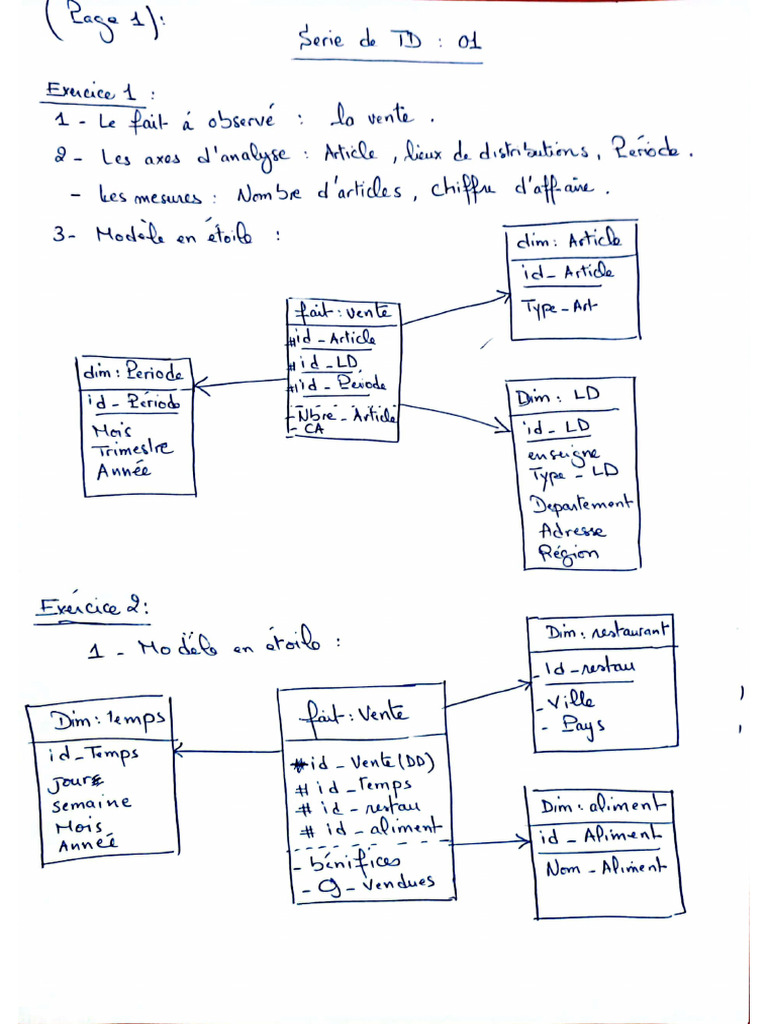 (Page 1):
Serie de TD : 01
Exercice 1 :
1 - Le fait à observé : la vente .
2 - Les axes d'analyse : Article , lieux de distributions , Période .
- Les mesures : Nombre d'articles , chiffre d'affaire .
3 - Modèle en étoile :
dim : Article
id_Article
Type_Art
fait : vente
#id_Article
#id_LD
#id_Période
- Nbre_Article
- CA
dim : Periode
id_Période
Mois
Trimestre
Année
Dim : LD
id_LD
enseigne
Type_LD
Departement
Adresse
Région
Exércice 2 :
1 - Modèle en étoile :
Dim : restaurant
- Id_restau
- Ville
- Pays
fait : Vente
#id_Vente (DD)
# id_Temps
# id_restau
# id_aliment
- bénifices
- Q_Vendues
Dim : Temps
id_Temps
Jours
Semaine
Mois
Année
Dim : aliment
id_Aliment
Nom_Aliment